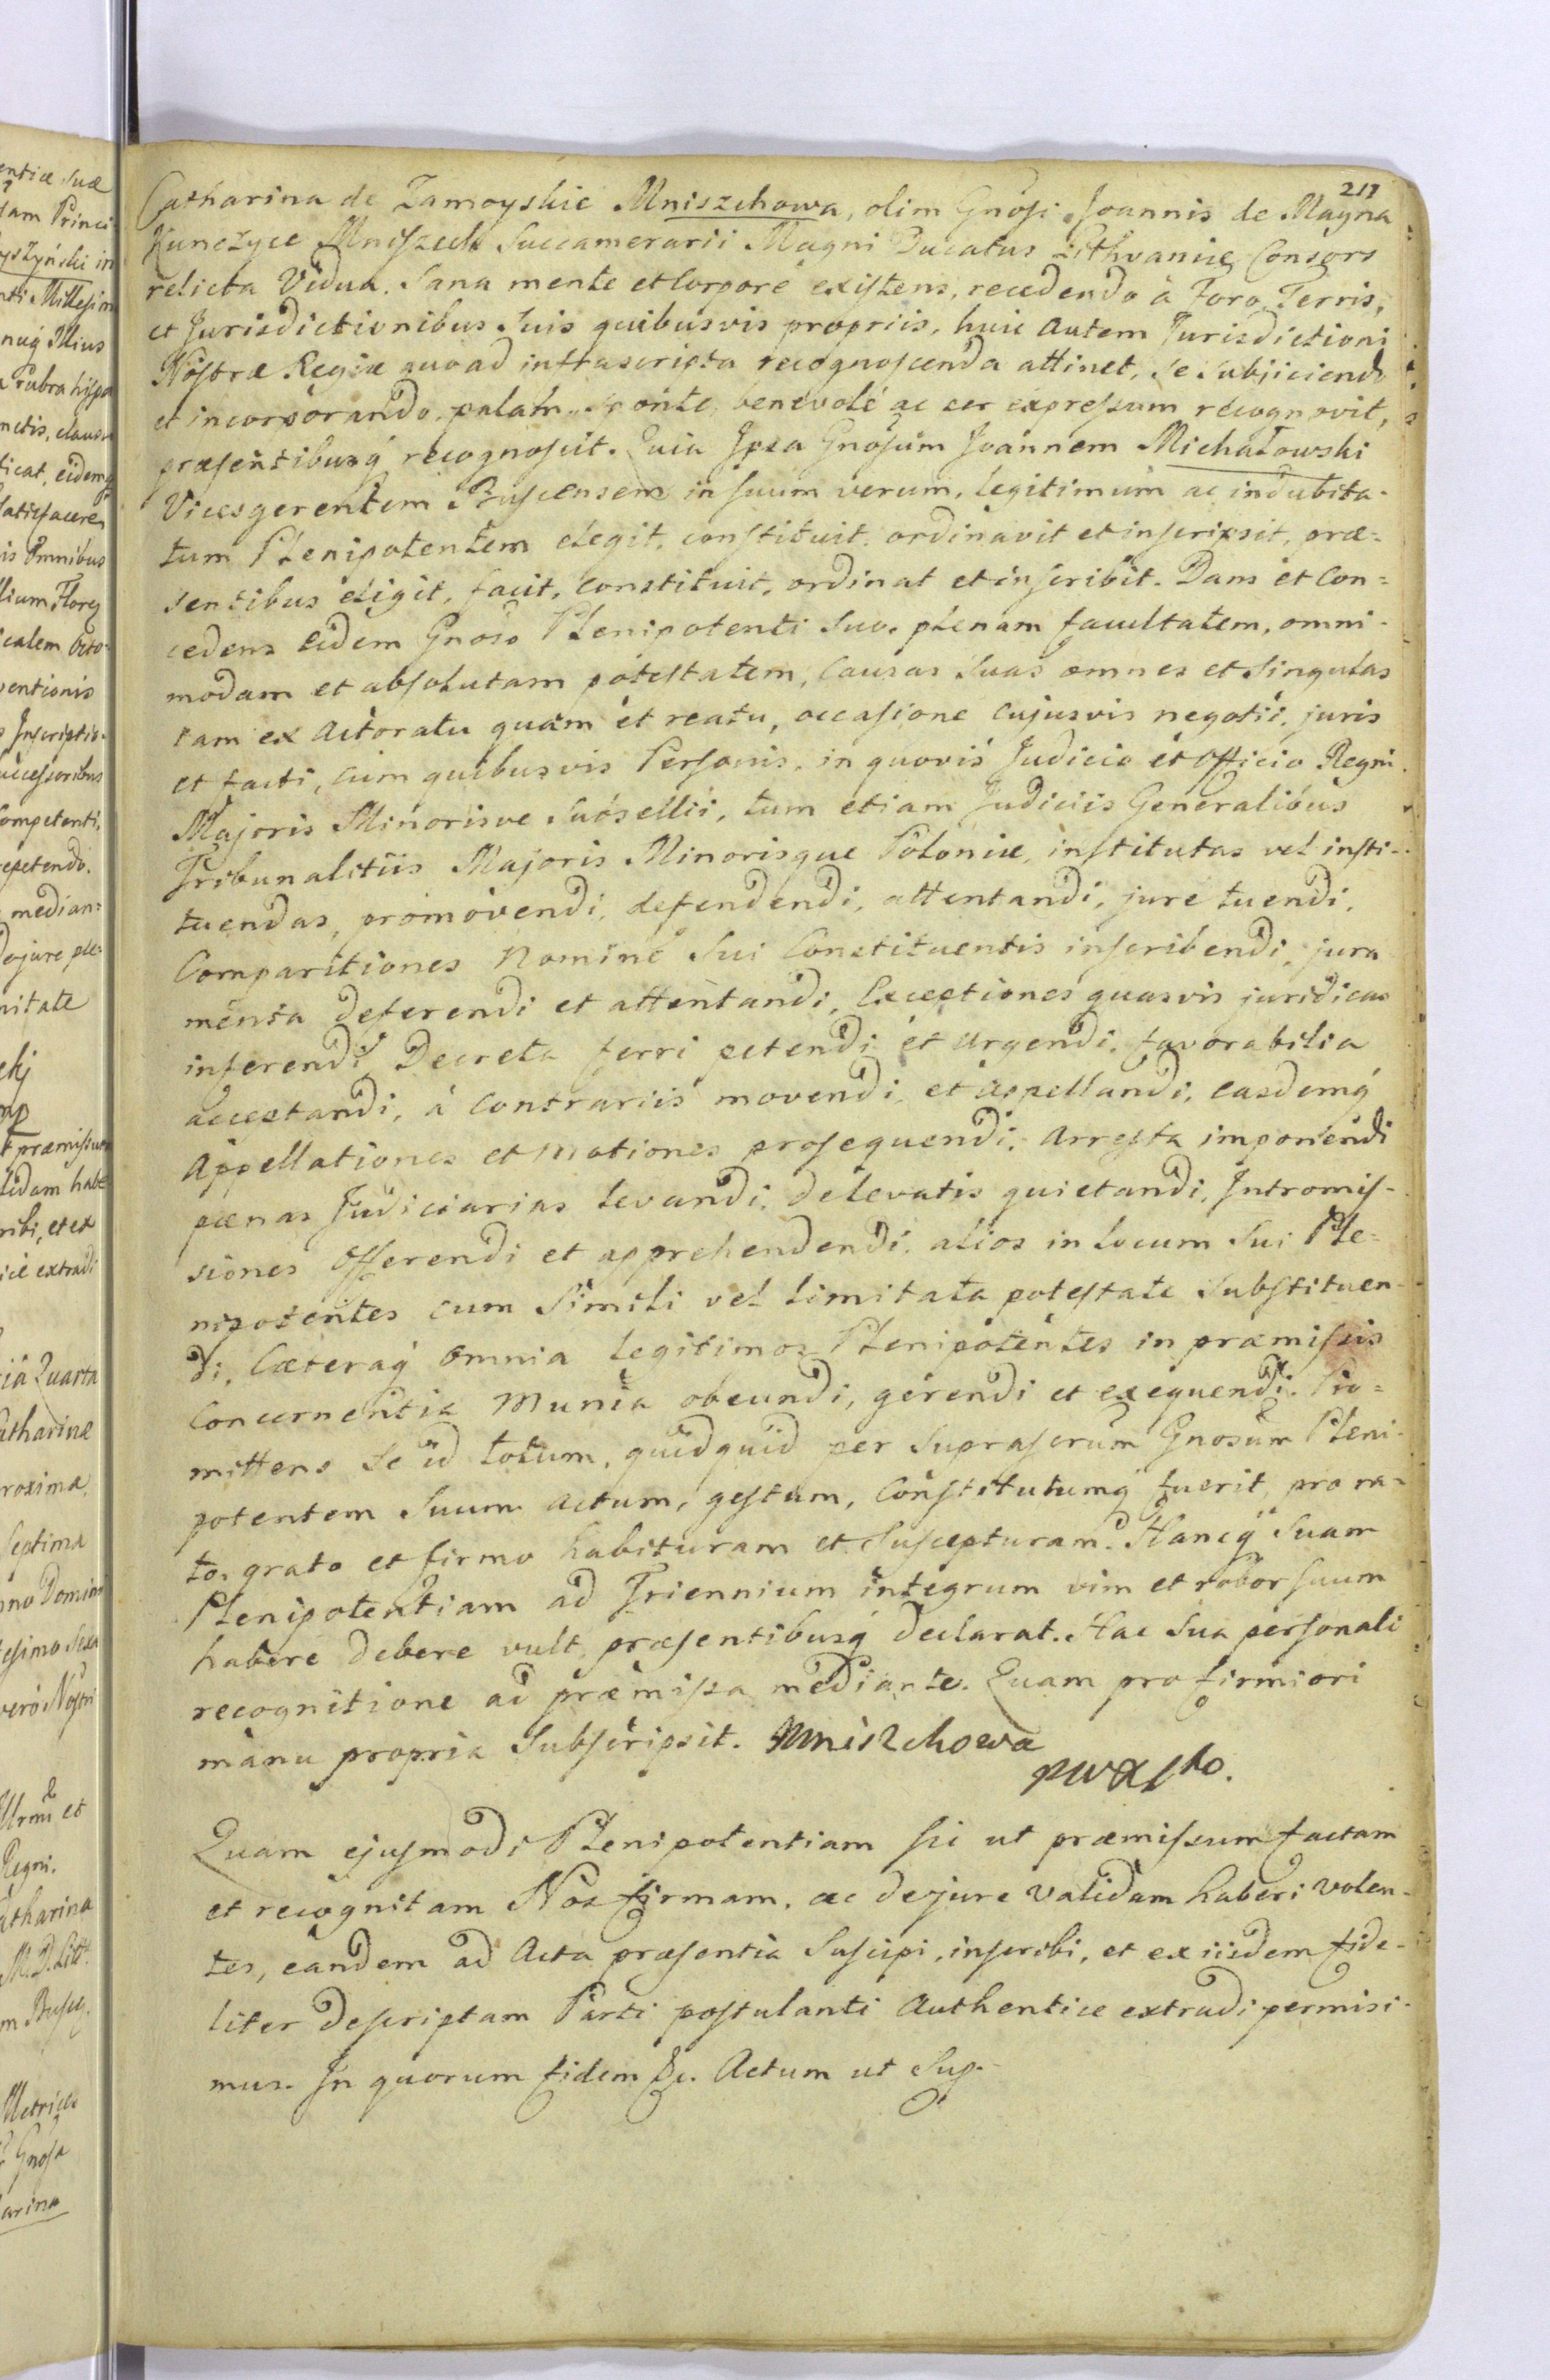 211
Catharina de Zamoyskie Mniszchowa, olim Gnosi Joannis de Magna
Kunczyce Mniszech Succamerarii Magni Ducatus Lithvaniæ Consors
relicta Vidua. Sana mente et Corpore existens, recedendo à Foro, Terris,
et Jurisdictionibus Suis quibusvis propriis, huic autem Jurisdictioni
Nostræ Regiæ quoad infrascripta recognoscenda attinet, se subjiciendo
et incorporando, palam, sponte, benevolé ac per expressum recognovit,
præsentibusq́ recognoscit. Quia Ipsa Gnosum Joannem Michałowski
Vicesgerentem Buscensem in suum verum, legitimum ac indubita-
tum Plenipotentem elegit, constituit, ordinavit et inscripsit, præ=
sentibus eligit, facit, constituit, ordinat et inscribit. Dans et Con=
cedens eidem Gnoso Plenipotenti Suo, plenam facultatem, omni-
modam et absolutam potestatem, Causas Suas omnes et Singulas
tam ex Actoratu quàm et reatu, occasione cujusvis negotii, juris
et facti, cum quibusvis Personis, in quovis Judicio et Officio Regni
Majoris Minorisve Subsellii, tum etiam Judiciis Generalibus
Tribunalitiis Majoris Minorisque Poloniæ, institutas vel insti-
tuendas, promovendi, defendendi, attentandi, jure tuendi,
Comparitiones Nomine Sui Constituentis inscribendi, jura
menta deferendi et attentandi, Exceptiones quasvis juridicas
inferendi, Decreta ferri petendi et urgendi, favorabilia
acceptandi, à Contrariis movendi et appellandi, easdemq́
Appellationes et Motiones prosequendi, Arresta imponendi
pænas Judiciarias levandi, de levatis quietandi, Intromis-
siones Offerendi et apprehendendi, alios in locum Sui Ple=
nipotentes cum Simili vel limitata potestate Substituen-
di, Cæteraq́ omnia legitimos Plenipotentes in præmissis
Concernentia Munia obeundi, gerendi et exequendi. Pro=
mittens Se id totum, quidquid per Suprascrum Gnosum Pleni-
potentem Suum actum, gestum, Constitutumq́ fuerit, pro ra-
to, grato et firmo habituram et Suscepturam. Hancq́ Suam
Plenipotentiam ad Triennium integrum vim et robor suum
habere debere vult, præsentibusq́ declarat. Hac Sua personali
recognitione ad præmissa mediante. Quam pro firmiori
manu propria Subscripsit. Mniszchowa
Quam ejusmodi Plenipotentiam sic ut præmissum factam
et recognitam Nos firmam, ac de jure validam haberi volen-
tes, eandem ad Acta præsentia Suscipi, inscribi, et ex iisdem fide-
liter descriptam Parti postulanti Authentice extradi permisi-
mus. In quorum fidem &c. Actum ut Sup.